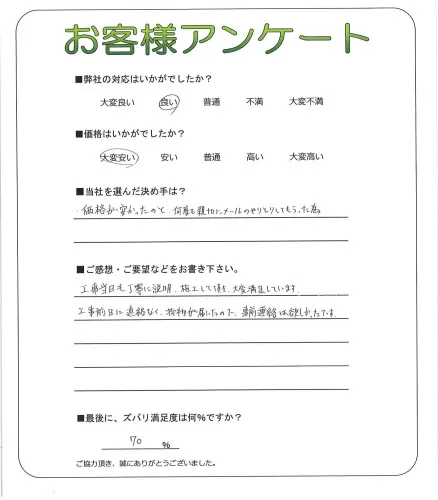 お客様アンケート
■弊社の対応はいかがでしたか？
大変良い 良い 普通 不満 大変不満
■価格はいかがでしたか？
大変安い 安い 普通 高い 大変高い
■当社を選んだ決め手は？
・価格が安かったのと・何度も親切にメールのやりとりしてもらった為。
■ご感想・ご要望などをお書き下さい。
工事当日も丁寧に説明、施工して頂き、大変満足しています。
工事前日に連絡なく、荷物が届いたので、事前連絡は欲しかったです。
■最後に、ズバリ満足度は何%ですか？
70 %
ご協力頂き、誠にありがとうございました。